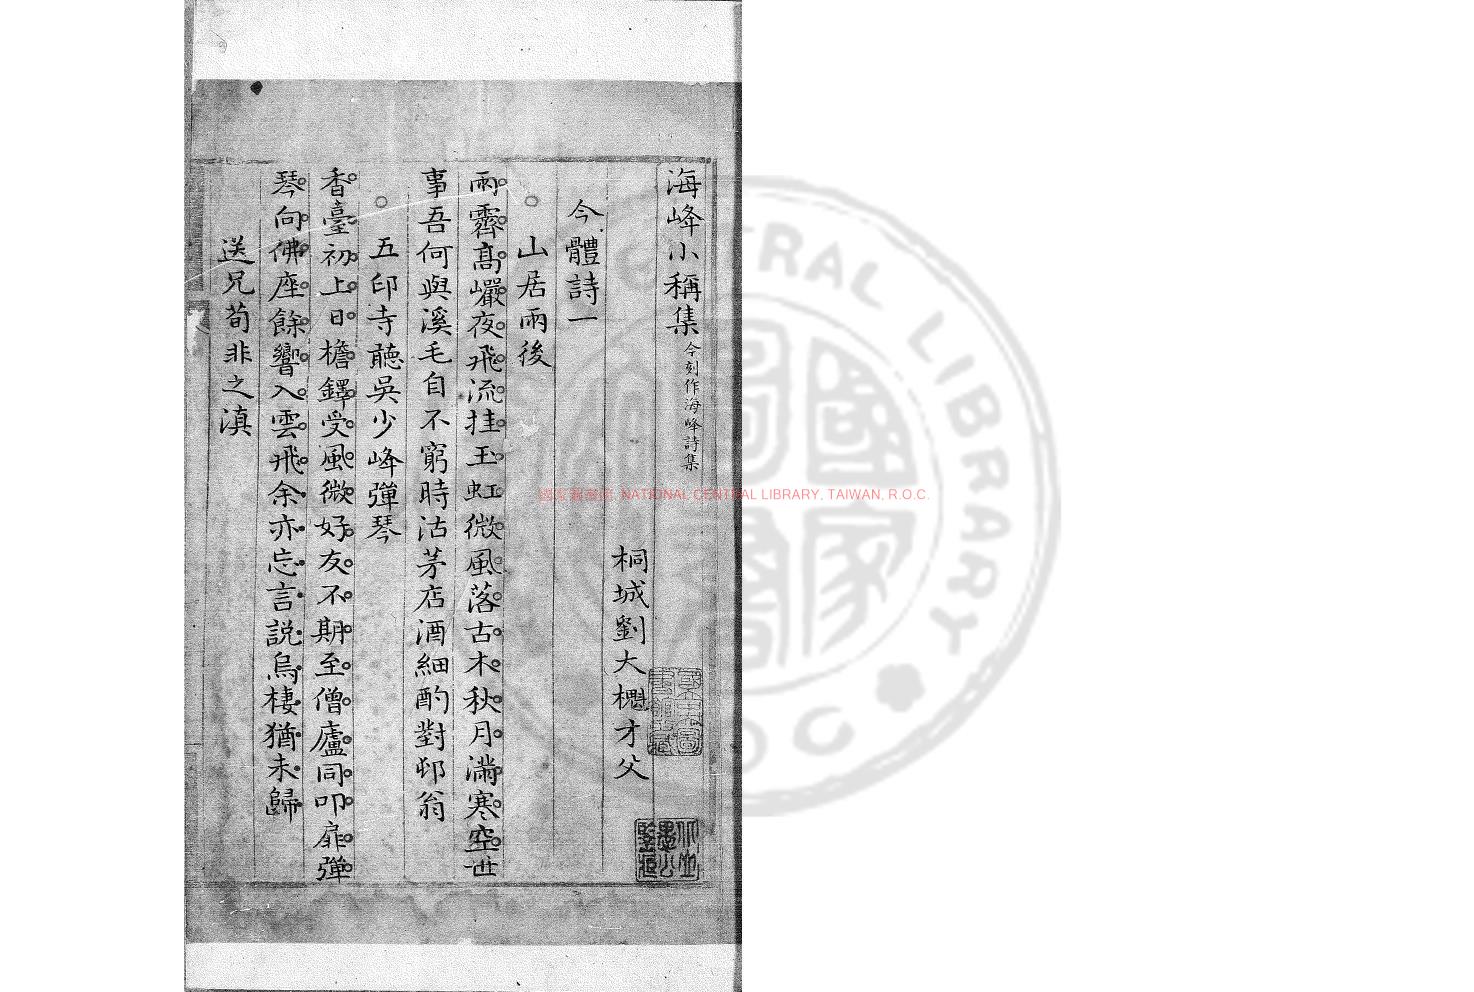 海峰小稱集 今刻作海峰詩集
桐城劉大櫆才父
今體詩一
山居雨後
雨霽高巘夜飛流挂玉虹微風落古木秋月滿寒空世
事吾何與溪毛自不窮時沽茅店酒細酌對邨翁
五印寺聽吳少峰彈琴
香臺初上日檐鐸受風微好友不期至僧廬同叩扉彈
琴向佛座餘響入雲飛余亦忘言說烏棲猶未歸
送兄荀非之滇
NATIONAL CENTRAL LIBRARY, TAIWAN, R.O.C.